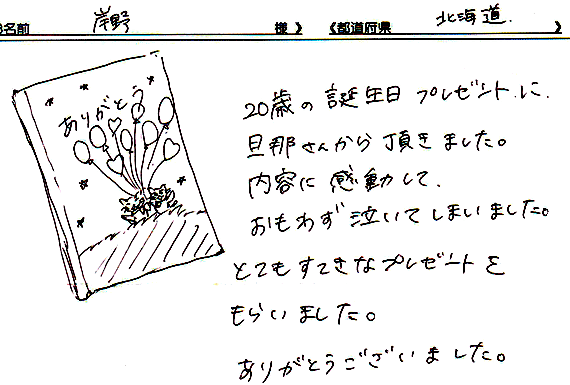 お名前 岸野 様 》 《都道府県 北海道. 》
ありがとう
20歳の誕生日プレゼントに
旦那さんから頂きました。
内容に感動して、
おもわず泣いてしまいました。
とてもすてきなプレゼントを
もらいました。
ありがとうございました。